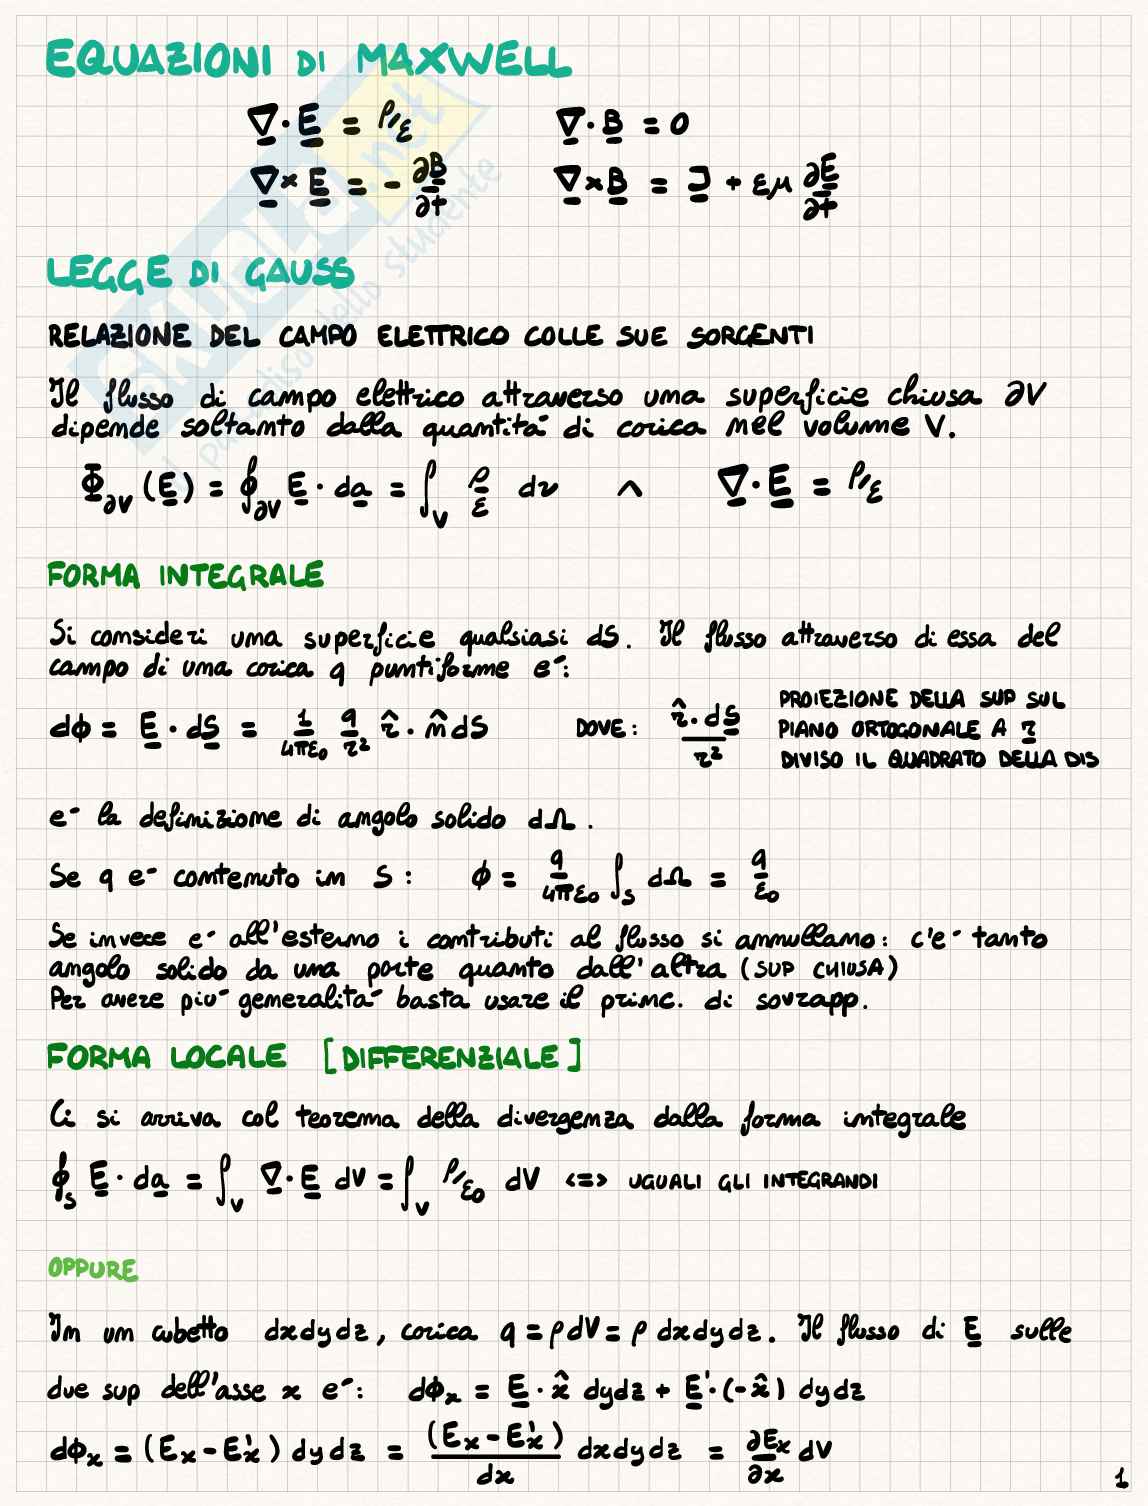 EQUAZIONI DI MAXWELL
∇·E = ρ/ε    ∇·B = 0
∇×E = -∂B/∂t    ∇×B = J + εμ ∂E/∂t
LEGGE DI GAUSS
RELAZIONE DEL CAMPO ELETTRICO COLLE SUE SORGENTI
Il flusso di campo elettrico attraverso una superficie chiusa ∂V
dipende soltanto dalla quantità di carica nel volume V.
Φ∂V (E) = ∮∂V E · da = ∫V ρ/ε dv  ∧  ∇·E = ρ/ε
FORMA INTEGRALE
Si consideri una superficie qualsiasi dS. Il flusso attraverso di essa del
campo di una carica q puntiforme è:
dϕ = E · dS = 1/4πε0 q/r² r̂ · n̂ dS   DOVE: r̂·dS/r²   PROIEZIONE DELLA SUP SUL
PIANO ORTOGONALE A r
DIVISO IL QUADRATO DELLA DIS
è la definizione di angolo solido dΩ.
Se q è contenuto in S: ϕ = q/4πε0 ∫S dΩ = q/ε0
Se invece è all'esterno i contributi al flusso si annullano: c'è tanto
angolo solido da una parte quanto dall'altra (SUP CHIUSA)
Per avere più generalità basta usare il princ. di sovrapp.
FORMA LOCALE [DIFFERENZIALE]
Ci si arriva col teorema della divergenza dalla forma integrale
∮S E · da = ∫V ∇·E dV = ∫V ρ/ε0 dV <=> UGUALI GLI INTEGRANDI
OPPURE
In un cubetto dxdydz, carica q = ρdV = ρ dxdydz. Il flusso di E sulle
due sup dell'asse x è: dϕx = E · x̂ dydz + E'·(-x̂) dydz
dϕx = (Ex - E'x) dydz = (Ex - E'x)/dx dxdydz = ∂Ex/∂x dV
1
SKUOLA.net
il paradiso dello studente